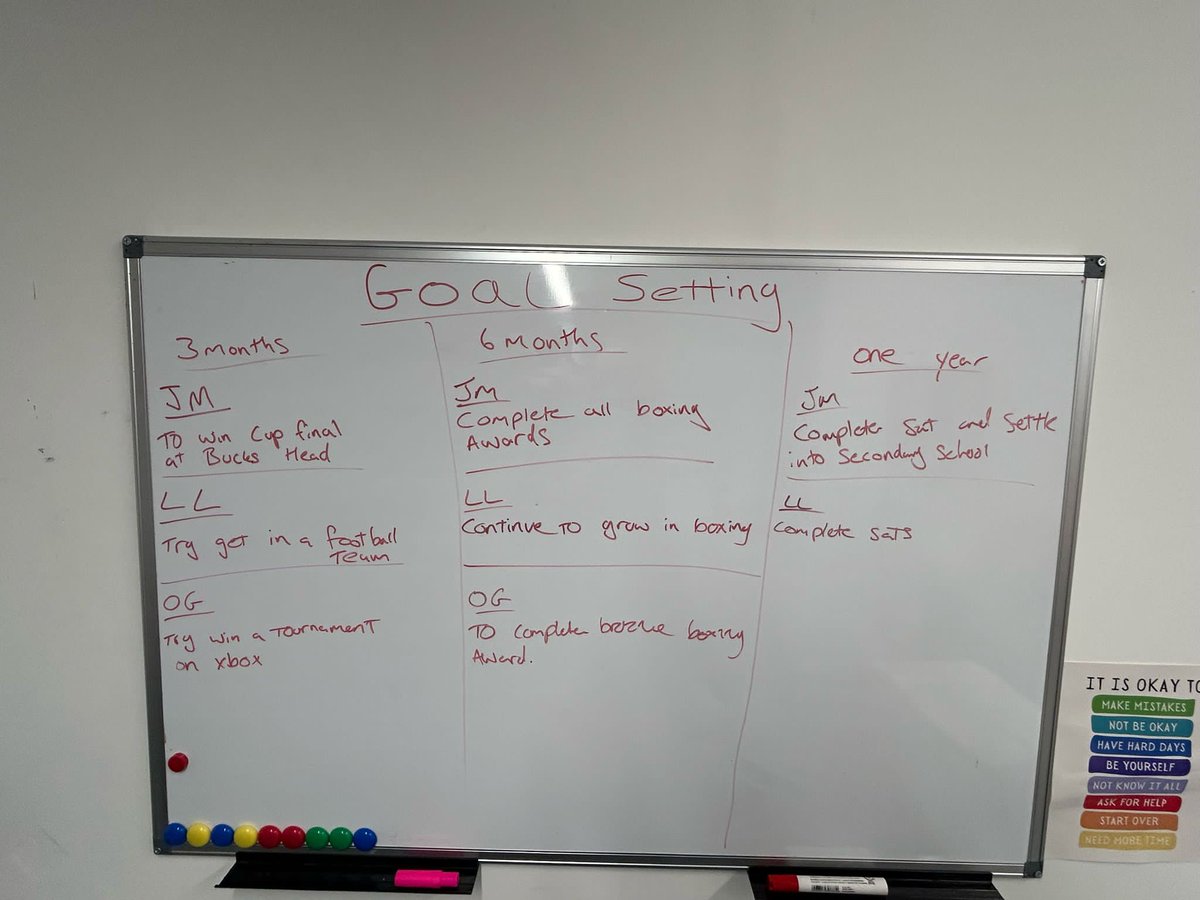 Goal Setting
3 months
JM
To win Cup final
at Bucks Head
LL
Try get in a football
Team
OG
Try win a Tournament
on xbox
6 months
JM
Complete all boxing
Awards
LL
Continue To grow in boxing
OG
To complete bronze boxing
Award.
one year
JM
Complete Sat and Settle
into Secondary School
LL
Complete SATS
IT IS OKAY TO
MAKE MISTAKES
NOT BE OKAY
HAVE HARD DAYS
BE YOURSELF
NOT KNOW IT ALL
ASK FOR HELP
START OVER
NEED MORE TIME